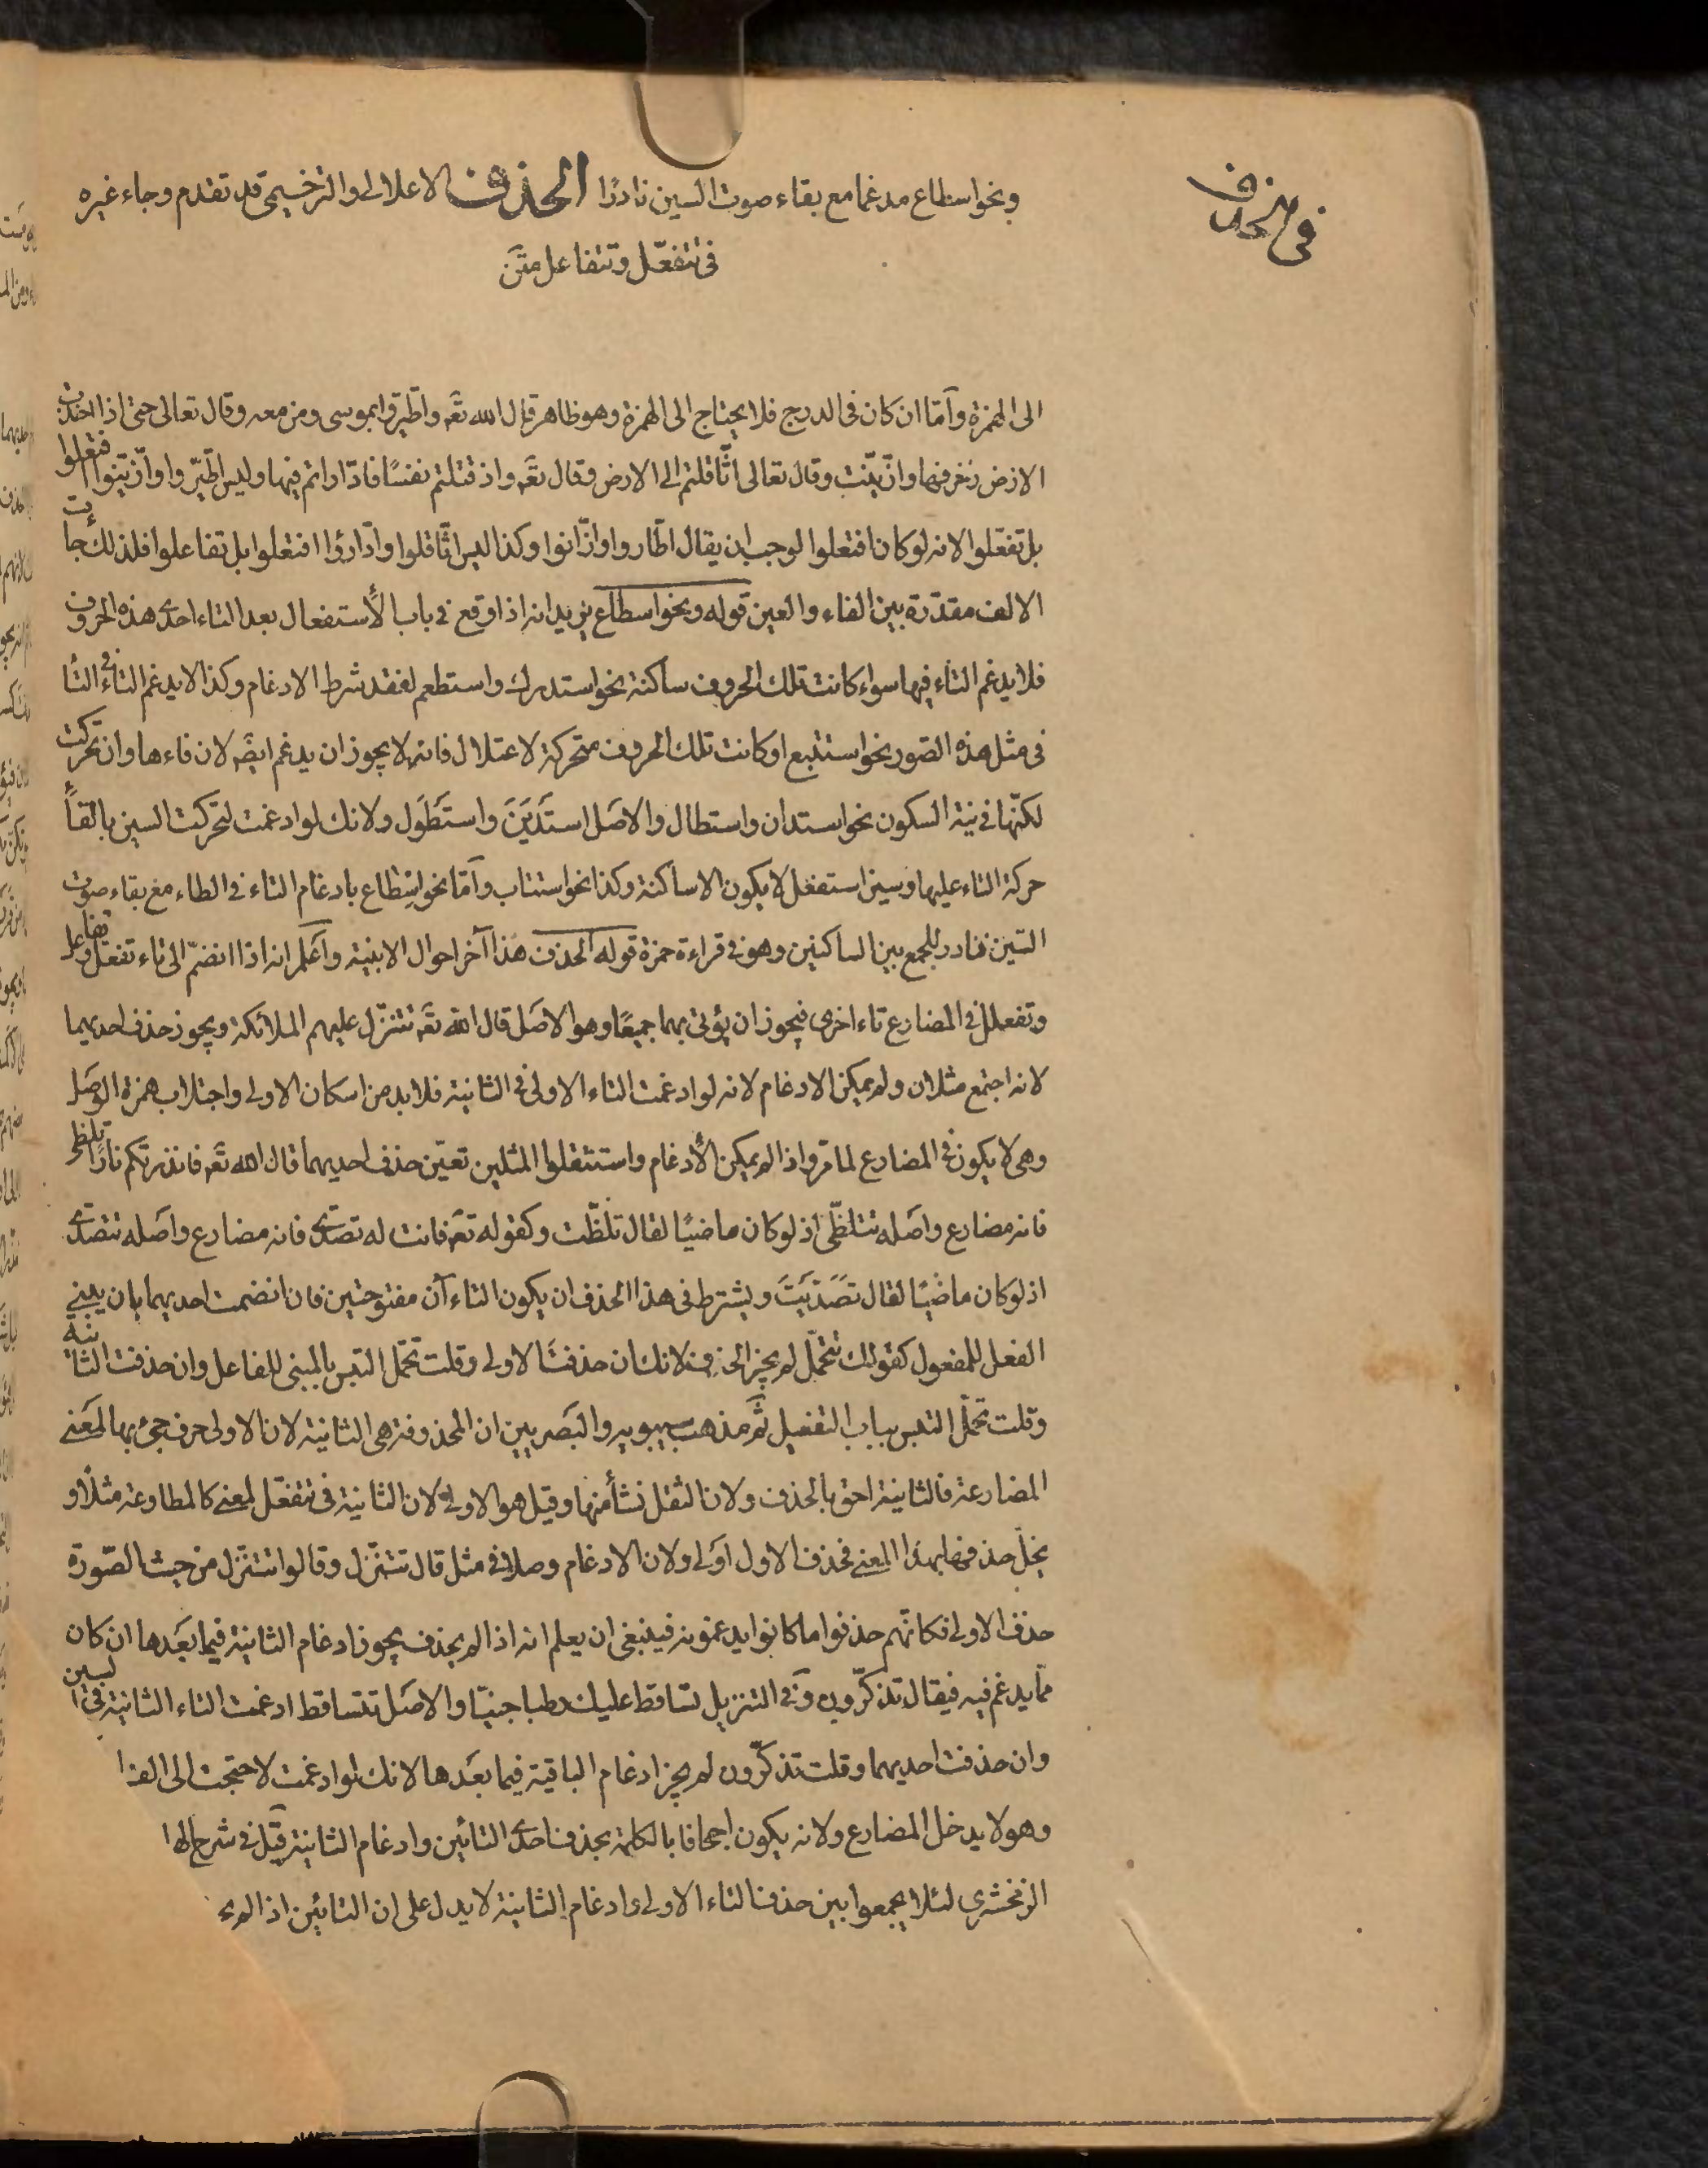 في الحذف
ونحو اسطاع مدغما مع بقاء صوت السين نادرًا الحذف الاعلالى والترخيمى قد تقدم وجاء غيره
فى تتفعّل وتتفاعل متن
الى الهمزة وآمّا ان كان فى الدرج فلا يحتاج الى الهمزة وهو ظاهر قال الله تعَه واطّيّروا بموسى ومن معه وقال تعالى حتى اذا اخذت
الارض زخرفها وازّيّنت وقال تعالى اثّاقلتم الى الارض وقال تعَه واذ قتلتم نفسًا فادّاراتم فيها وليس اطّيّروا وازّيّنوا افتعلوا
بل تفعّلوا لانه لو كان افتعلوا لوجب ان يقال اطّاروا وازّانوا وكذا ليس اثّاقلوا وادّارؤا افتعلوا بل تفاعلوا فلذلك جاءت
الالف مقدّرة بين الفاء والعين قوله ونحو اسطاع يريد انه اذا وقع في باب الأستفعال بعد التاء احدى هذه الحروف
فلا يدغم التاء فيها سواء كانت تلك الحروف ساكنة نحو استدرك واستطعم لفقد شرط الادغام وكذا لا يدغم التاء فى التا
فى مثل هذه الصّور نحو استتبع او كانت تلك الحروف متحركة لاعتلال فانه لا يجوز ان يدغم ايضَه لان فاءها وان تحركت
لكنّها في نية السكون نحو استدان واستطال والاصَل استَدْيَنَ واستَطْوَل ولانك لو ادغمت لتحركت السين بالقاء
حركة التاء عليها وسين استفعَل لا يكون الا ساكنة وكذا نحو استتاب وآمّا نحو اسْطّاع بادغام التاء في الطاء مع بقاء صوت
السّين فنادر للجمع بين الساكنين وهو في قراءة حمزة قوله الحذف هذا آخر احوال الابنية واَعلم انه اذا انضمّ الى تاء تفعّل وتفاعل
وتفعلل في المضارع تاء اخرى فيجوز ان يؤتى بهما جميعًا وهو الاصَل قال الله تعَه تتنزّل عليهم الملائكة ويجوز حذف احديهما
لانه اجتمع مثلان ولم يمكن الادغام لانه لو ادغمت التاء الاولى فى الثانية فلا بد من اسكان الاولى واجتلاب همزة الوصَل
وهى لا يكون فى المضارع لما مرّ واذا لم يمكن الأدغام واستثقلوا المثلين تعيّن حذف احديهما قال الله تعَه فانذرتكم نارًا تلظى
فانه مضارع واصَله تتلظّى اذ لو كان ماضيًا لقال تلظّت وكقوله تعَه فانت له تصدّى فانه مضارع واصَله تتصدّى
اذ لو كان ماضيًا لقال تصَدّيتَ ويشترط فى هذا الحذف ان يكون التاءآن مفتوحتين فان انضمت احديهما بان يبنى
الفعل للمفعول كقولك تتحمّل لم يجز الحذف لانك ان حذفت الاولى وقلت تحمّل التبس بالمبنى للفاعل وان حذفت الثانية
وقلت تحمّل التبس بباب التفعيل ثمَّ مذهب سيبويه والبَصريين ان المحذوفة هى الثانية لان الاولى حرف جئ بها لمعنى
المضارعة فالثانية احق بالحذف ولان الثقل نشأ منها وقيل هو الاولى لان الثانية فى تتفعّل لمعنى كالمطاوعة مثلاً و
يخلّ حذفها بهذا المعنى فحذف الاول اولى ولان الادغام وصلا فى مثل قال تتنزّل وقالوا تتنزّل من حيث الصّورة
حذف الاولى فكانّهم حذفوا ما كانوا يدغمونه فينبغى ان يعلم انه اذا لم يحذف يجوز ادغام الثانية فيما بَعدها ان كان
ممّا يدغم فيه فيقال تذّكّرون وفى التنزيل تسّاقط عليك رطبا جنيّا والاصَل تتساقط ادغمت التاء الثانية فى السين
وان حذفت احديهما وقلت تذكّرون لم يجز ادغام الباقية فيما بَعدها لانك لو ادغمت لاحتجت الى الف ا
وهو لا يدخل المضارع ولانه يكون اجحافا بالكلمة بحذف احدى التائين وادغام الثانية قيل فى شرح الها
الزمخشرى لئلا يجمعوا بين حذف التاء الاولى وادغام الثانية لا يدل على ان التائين اذا لم يح